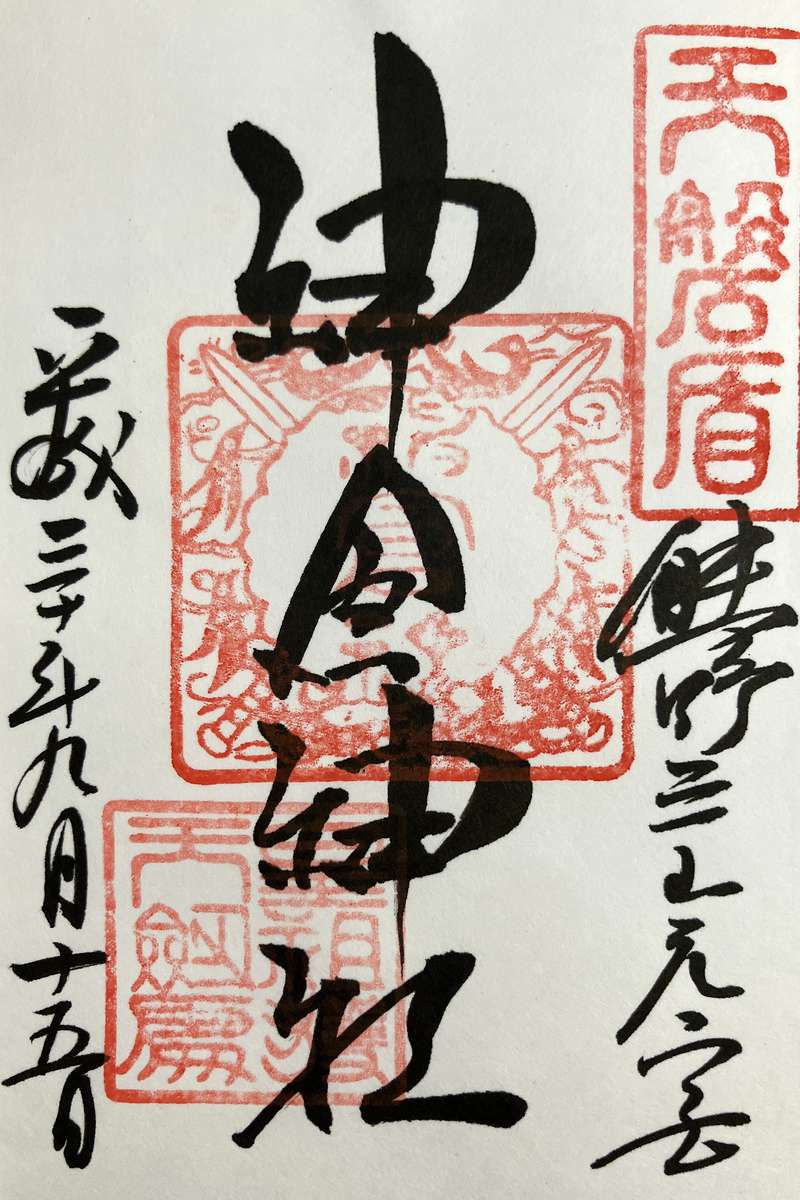 天磐盾
熊野三山元宮
神倉神社
平成三十年九月十五日